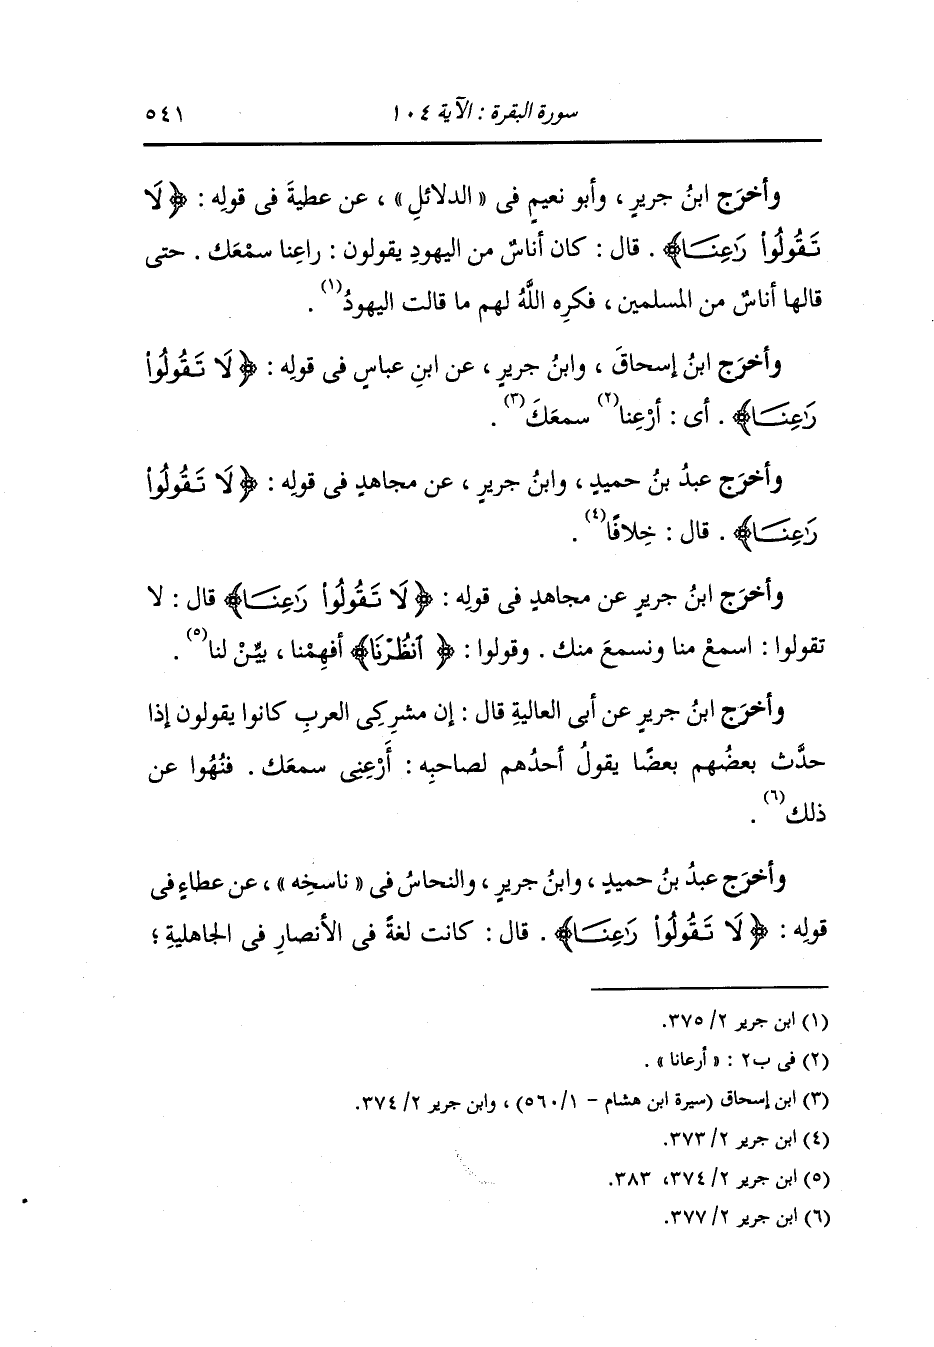 سورة البقرة : الآية ١٠٤ ٥٤١
وأخرَج ابنُ جريرٍ ، وأبو نعيمٍ فى «الدلائلِ» ، عن عطيةَ فى قولِه : ﴿لَا
تَقُولُوا۟ رَٰعِنَا﴾ . قال : كان أناسٌ من اليهودِ يقولون : راعِنا سمْعَك . حتى
قالها أناسٌ من المسلمين ، فكرِه اللَّهُ لهم ما قالت اليهودُ(١) .
وأخرَج ابنُ إسحاقَ ، وابنُ جريرٍ ، عن ابنِ عباسٍ فى قولِه : ﴿لَا تَقُولُوا۟
رَٰعِنَا﴾ . أى : أرْعِنا(٢) سمعَكَ(٣) .
وأخرَج عبدُ بنُ حميدٍ ، وابنُ جريرٍ ، عن مجاهدٍ فى قولِه : ﴿لَا تَقُولُوا۟
رَٰعِنَا﴾ . قال : خِلافًا(٤) .
وأخرَج ابنُ جريرٍ عن مجاهدٍ فى قولِه : ﴿لَا تَقُولُوا۟ رَٰعِنَا﴾ قال : لا
تقولوا : اسمعْ منا ونسمعَ منك . وقولوا : ﴿ٱنظُرْنَا﴾ أفهِمْنا ، بيِّنْ لنا(٥) .
وأخرَج ابنُ جريرٍ عن أبى العاليةِ قال : إن مشرِكِى العربِ كانوا يقولون إذا
حدَّث بعضُهم بعضًا يقولُ أحدُهم لصاحبِه : أَرْعِنِى سمعَك . فنُهُوا عن
ذلك(٦) .
وأخرَج عبدُ بنُ حميدٍ ، وابنُ جريرٍ ، والنحاسُ فى «ناسخِه» ، عن عطاءٍ فى
قولِه : ﴿لَا تَقُولُوا۟ رَٰعِنَا﴾ . قال : كانت لغةً فى الأنصارِ فى الجاهليةِ ؛
(١) ابن جرير ٢/ ٣٧٥.
(٢) فى ب٢ : «أرعانا» .
(٣) ابن إسحاق (سيرة ابن هشام - ١/ ٥٦٠) ، وابن جرير ٢/ ٣٧٤.
(٤) ابن جرير ٢/ ٣٧٣.
(٥) ابن جرير ٢/ ٣٧٤، ٣٨٣.
(٦) ابن جرير ٢/ ٣٧٧.